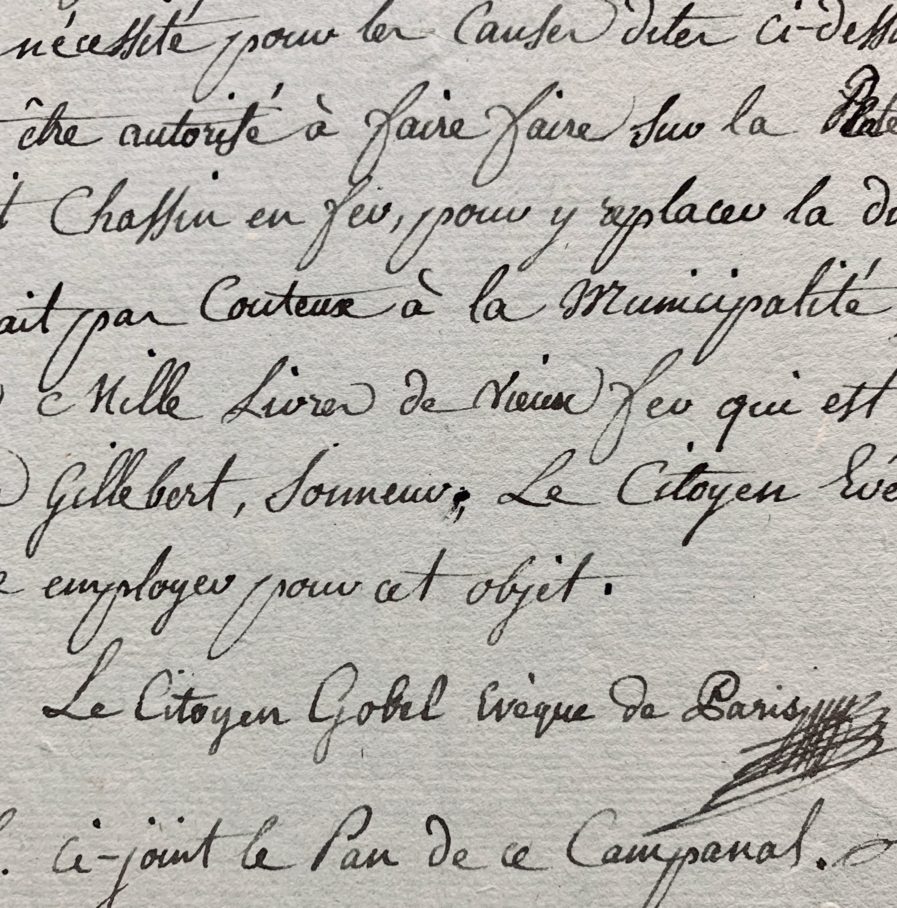 nécessité pour les Causes dites ci-dess
être autorisé à faire faire sur la Plate
t Chassin en fer, pour y replacer la d
ait par Couteux à la Municipalité
Mille Livres de Vieux fer qui est
Gillebert, Sonneur; Le Citoyen Evé
employer pour cet objet.
Le Citoyen Gobel Evêque de Paris
ci-joint le Pan de ce Campanal.